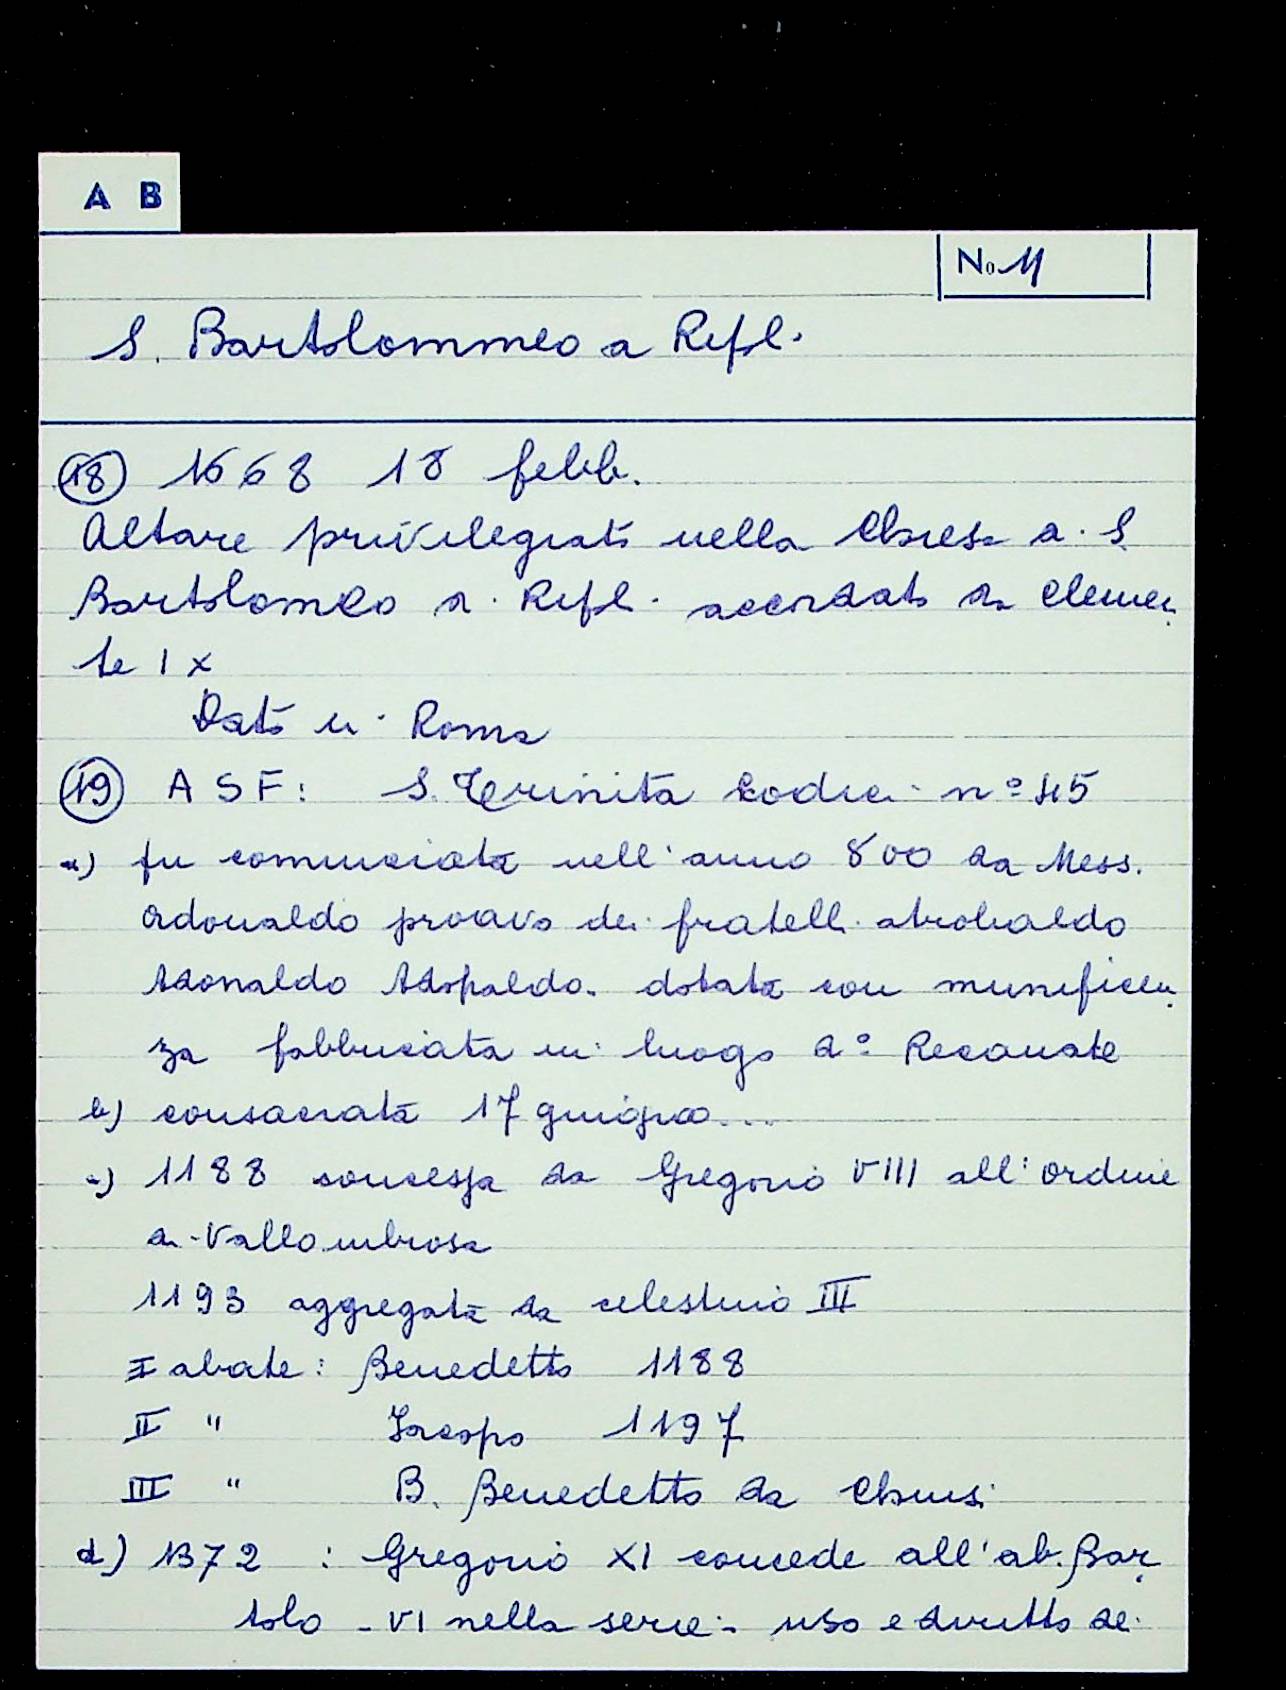 A B
No 11
S. Bartolommeo a Ripol.
18) 1668 18 febb.
Altare privilegiato nella Chiesa di S
Bartolomeo a Ripol. accordato da Clemen
te IX
Dato in Roma
19) ASF: S. Trinità Codici n° 45
a) fu cominciata nell'anno 800 da Mess.
Adonaldo proavo dei fratelli
Adonaldo dotata con munificen
za fabbricata in luogo d° Recanate
b) consacrata 17 giugno...
c) 1188 concessa da Gregorio VIII all'ordine
di Vallombrosa
1193 aggregata da celestino III
I abate: Benedetto 1188
II " Jacopo 1197
III " B. Benedetto da Chiusi
d) 1372 : Gregorio XI concede all'ab. Bar
tolo - VI nella serie - uso e diritto de